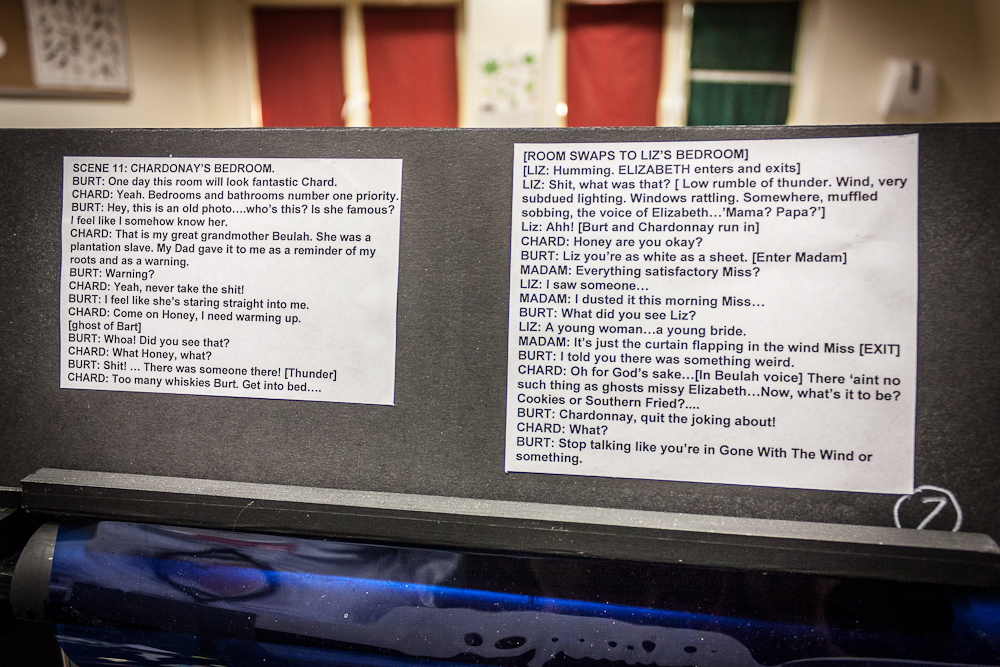 SCENE 11: CHARDONAY'S BEDROOM.
BURT: One day this room will look fantastic Chard.
CHARD: Yeah. Bedrooms and bathrooms number one priority.
BURT: Hey, this is an old photo….who's this? Is she famous?
I feel like I somehow know her.
CHARD: That is my great grandmother Beulah. She was a
plantation slave. My Dad gave it to me as a reminder of my
roots and as a warning.
BURT: Warning?
CHARD: Yeah, never take the shit!
BURT: I feel like she's staring straight into me.
CHARD: Come on Honey, I need warming up.
[ghost of Bart]
BURT: Whoa! Did you see that?
CHARD: What Honey, what?
BURT: Shit! … There was someone there! [Thunder]
CHARD: Too many whiskies Burt. Get into bed….
[ROOM SWAPS TO LIZ'S BEDROOM]
[LIZ: Humming. ELIZABETH enters and exits]
LIZ: Shit, what was that? [ Low rumble of thunder. Wind, very
subdued lighting. Windows rattling. Somewhere, muffled
sobbing, the voice of Elizabeth…'Mama? Papa?']
Liz: Ahh! [Burt and Chardonnay run in]
CHARD: Honey are you okay?
BURT: Liz you're as white as a sheet. [Enter Madam]
MADAM: Everything satisfactory Miss?
LIZ: I saw someone…
MADAM: I dusted it this morning Miss…
BURT: What did you see Liz?
LIZ: A young woman…a young bride.
MADAM: It's just the curtain flapping in the wind Miss [EXIT]
BURT: I told you there was something weird.
CHARD: Oh for God's sake…[In Beulah voice] There 'aint no
such thing as ghosts missy Elizabeth…Now, what's it to be?
Cookies or Southern Fried?....
BURT: Chardonnay, quit the joking about!
CHARD: What?
BURT: Stop talking like you're in Gone With The Wind or
something.
7